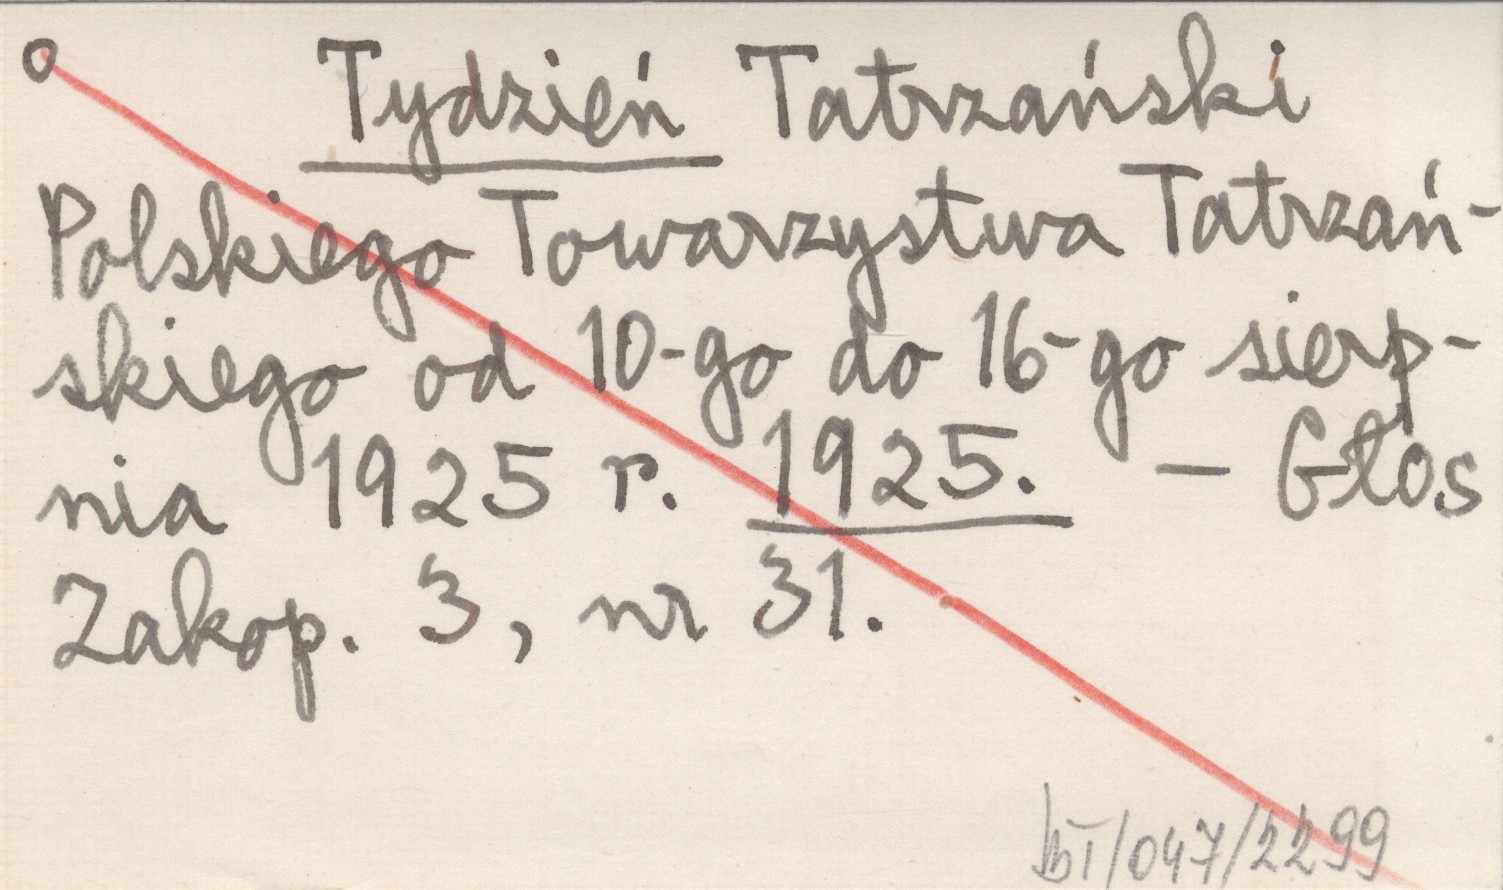 o Tydzień Tatrzański
Polskiego Towarzystwa Tatrzań-
skiego od 10-go do 16-go sierp-
nia 1925 r. 1925. — Głos
Zakop. 3, nr 31.
/047/2299